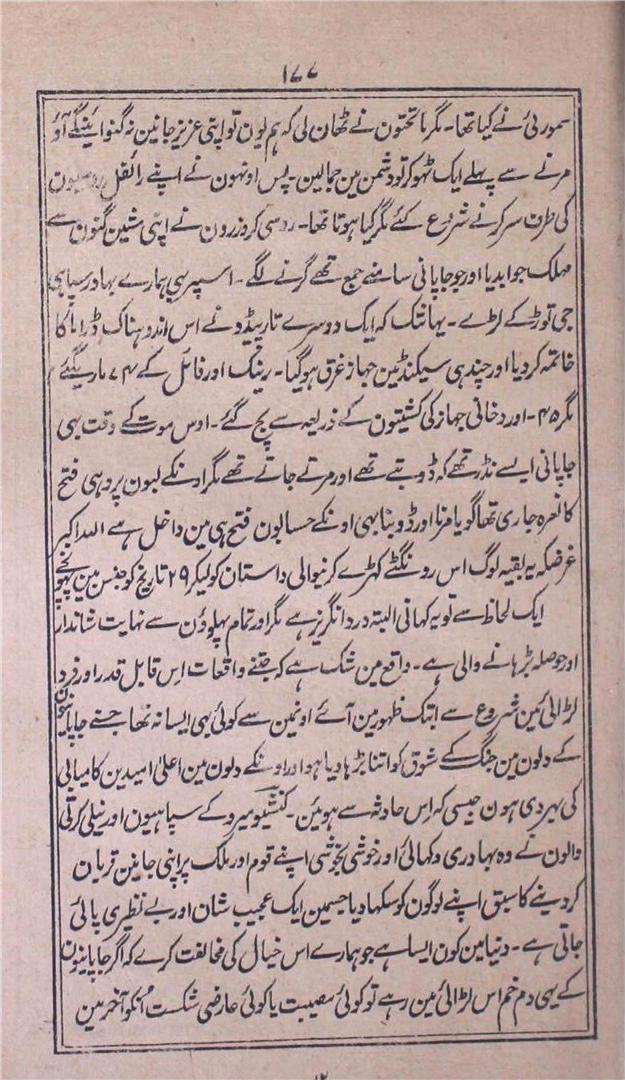 ۱۷۷
سموریٔ نے کیا تھا۔ مگر ماتحتون نے ٹھان لی کہ ہم یون تو اپنی عزیز جانین نہ گنوائینگے آؤ
مرنے سے پہلے ایک ٹھوکر تو دشمن مین جمالین۔ پس اونہون نے اپنے رائفل روسیون
کی طرف سر کرنے شروع کئے مگر کیا ہوتا تھا۔ روسی کروزرون نے اپنی مشین گنون سے
مہلک جوابدیا اور جو جاپانی سامنے جمع تھے گرنے لگے۔ اسپر بہی ہمارے بہادر سپاہی
جی توڑ کے لڑے۔ یہانتک کہ ایک دوسرے تارپیڈو نے اس اندوہناک ڈراما کا
خاتمہ کردیا اور چند ہی سیکنڈ مین جہاز غرق ہوگیا۔ رینک اور فائل کے ۷۴ مارے گئے
مگر ۴۵۔ اور دخانی جہاز کی کشتیون کے ذریعہ سے بچ گئے۔ اوس موت کے وقت بہی
جاپانی ایسے نڈر تھے کہ ڈوبتے تھے اور مرتے جاتے تھے مگر اونکے لبون پر وہی فتح
کا نعرہ جاری تھا گویا مرنا اور ڈوبنا بہی اونکے حسابون فتح ہی مین داخل ہے اللہ اکبر
غرضکہ یہ بقیہ لوگ اس رونگٹے کہڑے کرنیوالی داستان کو لیکر ۲۹ تاریخ کو جنسن مین پہونچے
ایک لحاظ سے تو یہ کہانی البتہ درد انگیز ہے مگر اور تمام پہلوؤن سے نہایت شاندار
اور حوصلہ بڑہانے والی ہے۔ واقع مین شک ہے کہ جتنے واقعات اس قابل قدر اور فرد
لڑائی مین شروع سے ابتک ظہور مین آئے اونمین سے کوئی بہی ایسا نہ تھا جسنے جاپانیون
کے دلون مین جنگ کے شوق کو اتنا بڑہا دیا ہو اور اونکے دلون مین اعلیٰ امیدین کامیابی
کی بہردی ہون جیسی کہ اس حادثہ سے ہوئین۔ کنشیو میرو کے سپاہیون اور نیلی کرتی
والون نے وہ بہادری دکھائی اور خوشی بخوشی اپنے قوم اور ملک پر اپنی جانین قربان
کردینے کا سبق اپنے لوگون کو سکھا دیا جسمین ایک عجیب شان اور بے نظیری پائی
جاتی ہے۔ دنیا مین کون ایسا ہے جو ہمارے اس خیال کی مخالفت کرے کہ اگر جاپانیون
کے یہی دم خم اس لڑائی مین رہے تو کوئی مصیبت یا کوئی عارضی شکست اُنکو آخر مین